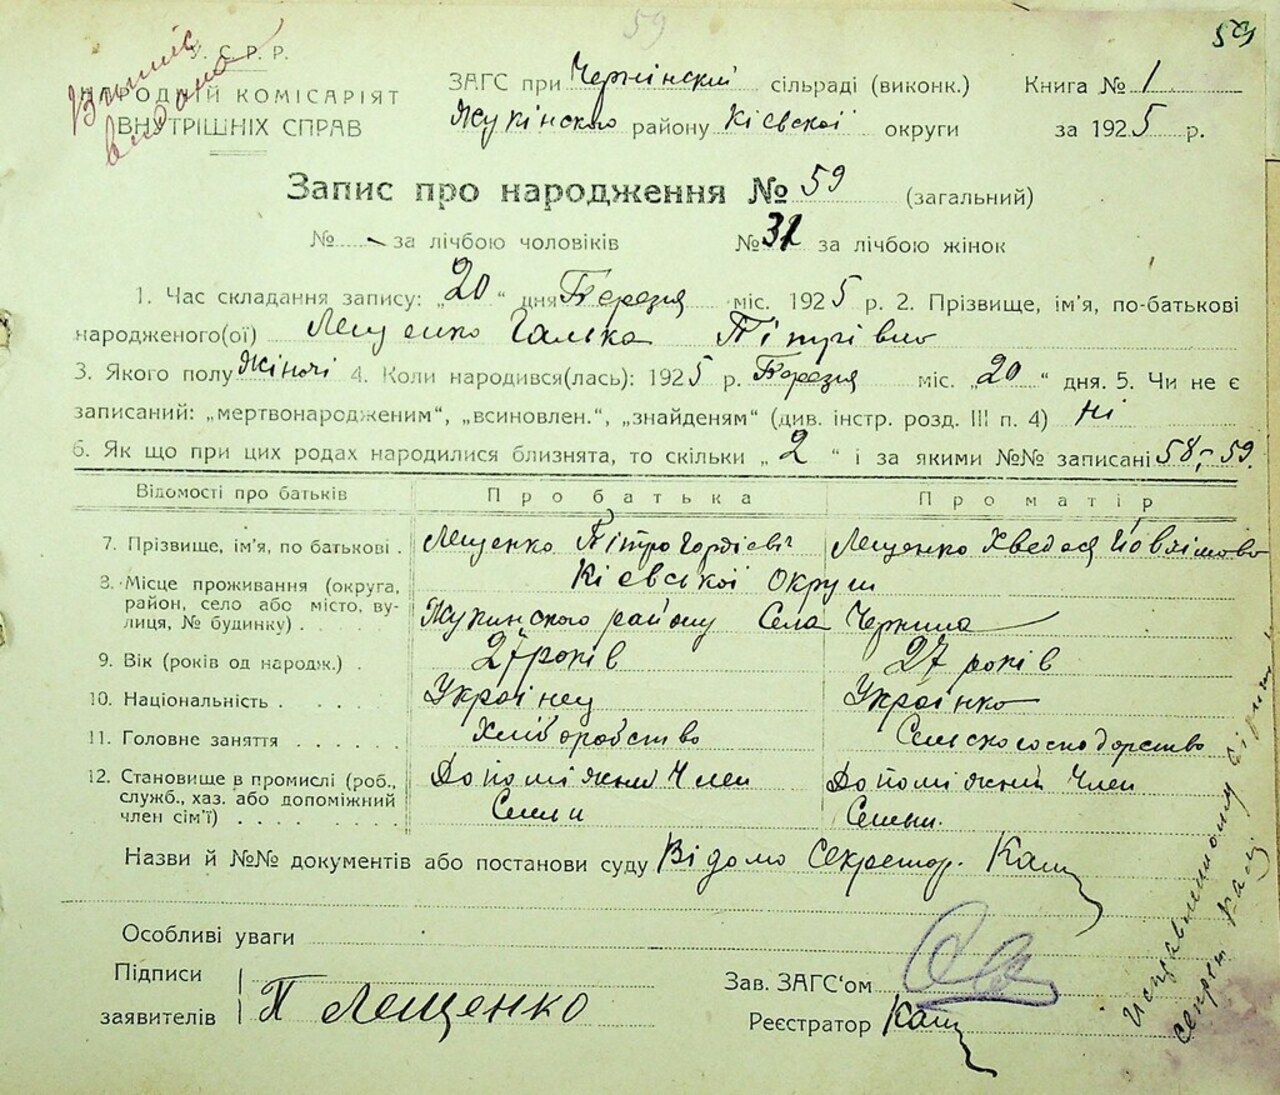 59
59
Випис
видано
У. С. Р. Р.
НАРОДНІЙ КОМІСАРІЯТ
ВНУТРІШНІХ СПРАВ
ЗАГС при Чернінскій сільраді (виконк.) Книга № 1
Жукінского району Кіевскої округи за 1925 р.
Запис про народження № 59 (загальний)
№ - за лічбою чоловіків № 31 за лічбою жінок
1. Час складання запису: „20“ дня Березня міс. 1925 р. 2. Прізвище, ім'я, по-батькові
народженого(ої) Лещенко Галька Пітрівно
3. Якого полу Жіночі 4. Коли народився(лась): 1925 р. Березня міс. „20“ дня. 5. Чи не є
записаний: „мертвонародженим“, „всиновлен.“, „знайденям“ (див. інстр. розд. III п. 4) Ні
6. Як що при цих родах народилися близнята, то скільки „2“ і за якими №№ записані 58,- 59.
Відомості про батьків Про батька Про матір
7. Прізвище, ім'я, по батькові . Лещенко Пітро Гордієвіч Лещенко Хведося
8. Місце проживання (округа, район, село або місто, вулиця, № будинку) . Кіевської Округи
Жукинского району Села Чернина
9. Вік (років од народж.) . 27 років 27 років
10. Національність . . . . . Українец Українко
11. Головне заняття . . . . . . Хліборобство Сельскогосподорство
12. Становище в промислі (роб., служб., хаз. або допоміжний член сім'ї) . . . . . . . . Допоміжний Член Семьи Допоміжний Член Семьи.
Назви й №№ документів або постанови суду Відомо Секретор.
Особливі уваги
Підписи
заявителів П Лещенко
Зав. ЗАГС'ом
Реєстратор
Исправленному вірить
секрет